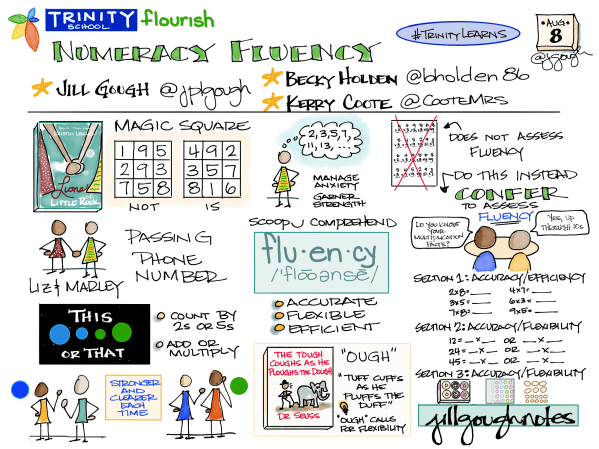 TRINITY
SCHOOL
flourish
#TRINITYLEARNS
AUG
8
@jgough
NUMERACY FLUENCY
JILL GOUGH @jplgough
BECKY HOLDEN @bholden86
KERRY COOTE @COOTEMRS
Lions
LITTLE ROCK
MAGIC SQUARE
1 9 5
2 9 3
7 5 8
NOT
4 9 2
3 5 7
8 1 6
IS
2, 3, 5, 7,
11, 13, ...
MANAGE
ANXIETY
GARNER
STRENGTH
DOES NOT ASSESS
FLUENCY
DO THIS INSTEAD
CONFER
TO ASSESS
FLUENCY
DO YOU KNOW
YOUR
MULTIPLICATION
FACTS?
YES, UP
THROUGH 10s
LIZ & MARLEY
PASSING
PHONE
NUMBER
SCOOP U COMPREHEND
flu·en·cy
/'flōōənsē/
ACCURATE
FLEXIBLE
EFFICIENT
THIS
OR THAT
COUNT BY
2s OR 5s
ADD OR
MULTIPLY
STRONGER
AND
CLEARER
EACH
TIME
THE TOUGH
COUGHS AS HE
PLOUGHS THE DOUGH
DR SEUSS
"OUGH"
"TUFF CUFFS
AS HE
FLUFFS THE
DUFF"
"OUGH" CALLS
FOR FLEXIBILITY
SECTION 1: ACCURACY/EFFICIENCY
2x8= __ 4x7= __
3x5= __ 6x3= __
7x8= __ 9x5= __
SECTION 2: ACCURACY/FLEXIBILITY
12= __ x __ OR __ x __
24= __ x __ OR __ x __
45= __ x __ OR __ x __
SECTION 3: ACCURACY/FLEXIBILITY
jillgoughnotes